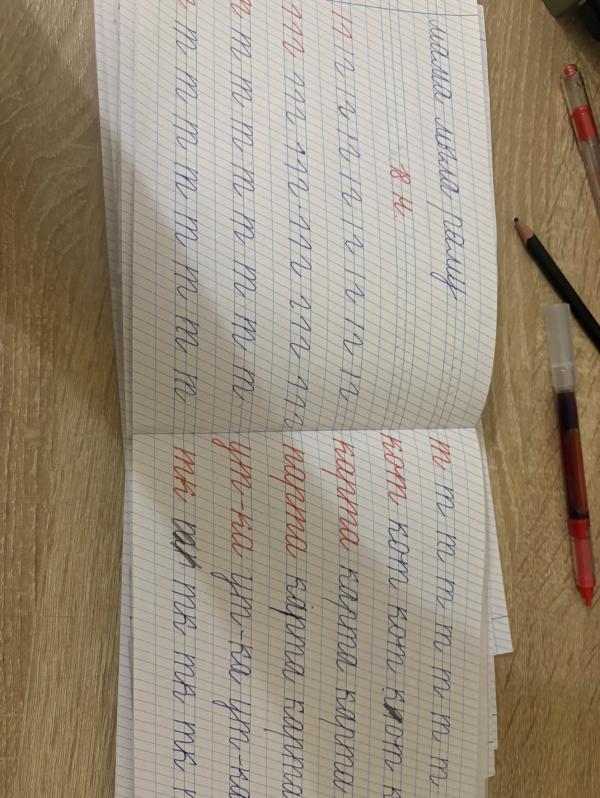 мама мыла раму
8 н.
п п п п п п п п п
т т т т т т т
т т т т т т т т т
т т т т т т т т т
т т т т т т т т
кот кот кот кот к
карта карта карта
карта карта карта
ут-ка ут-ка ут-ка
тк тк тк тк